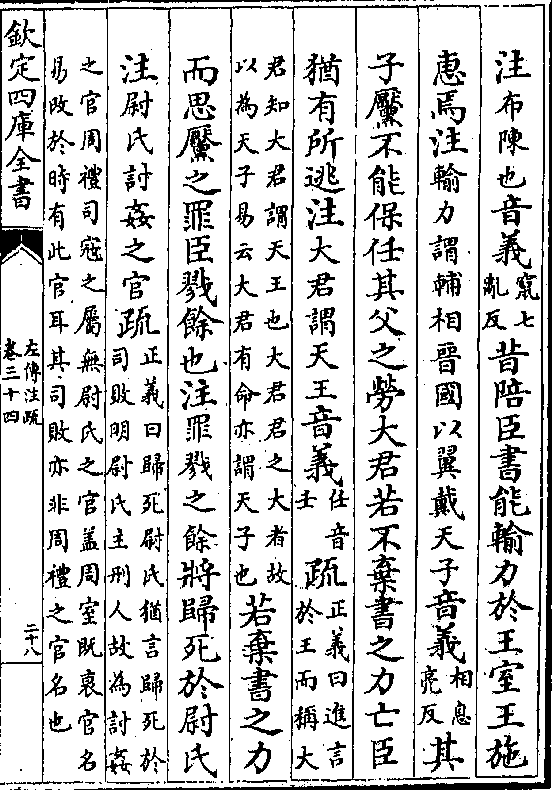 注布陳也音義竄七亂反昔陪臣書能輸力於王室王施
惠焉注輸力謂輔相晉國以翼戴天子音義相息亮反其
子黶不能保任其父之勞大君若不棄書之力亡臣
猶有所逃注大君謂天王音義任音壬疏正義曰進言於王而稱大
君知大君謂天王也大君君之大者故以為天子易云大君有命亦謂天子也若棄書之力
而思黶之罪臣戮餘也注罪戮之餘將歸死於尉氏
注尉氏討姦之官疏正義曰歸死尉氏猶言歸死於司敗明尉氏主刑人故為討姦
之官周禮司寇之屬無尉氏之官蓋周室既衰官名
易改於時有此官耳其司敗亦非周禮之官名也
欽定四庫全書
左傳注疏
卷三十四
二十八